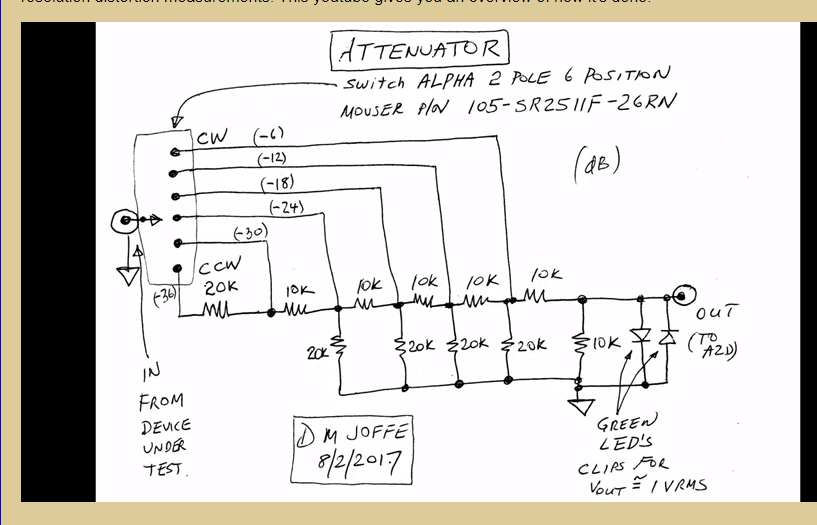 resolution distortion measurements. This youtube gives you an overview of how it's done:
ATTENUATOR
SWITCH ALPHA 2 POLE 6 POSITION
MOUSER P/N 105-SR2511F-26RN
CW (-6)
(-12)
(dB)
(-18)
(-24)
(-30)
CCW
(-36)
20K
10K
10K
10K
10K
10K
OUT
(TO A2D)
20K
20K
20K
20K
10K
IN
FROM
DEVICE
UNDER
TEST.
D M JOFFE
8/2/2017
GREEN
LED'S
CLIPS FOR
VOUT ≅ 1 VRMS